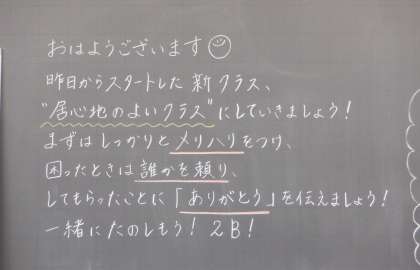 おはようございます☺
昨日からスタートした新クラス、
"居心地のよいクラス"にしていきましょう！
まずはしっかりとメリハリをつけ、
困ったときは誰かを頼り、
してもらったことに「ありがとう」を伝えましょう！
一緒にたのしもう！2B！